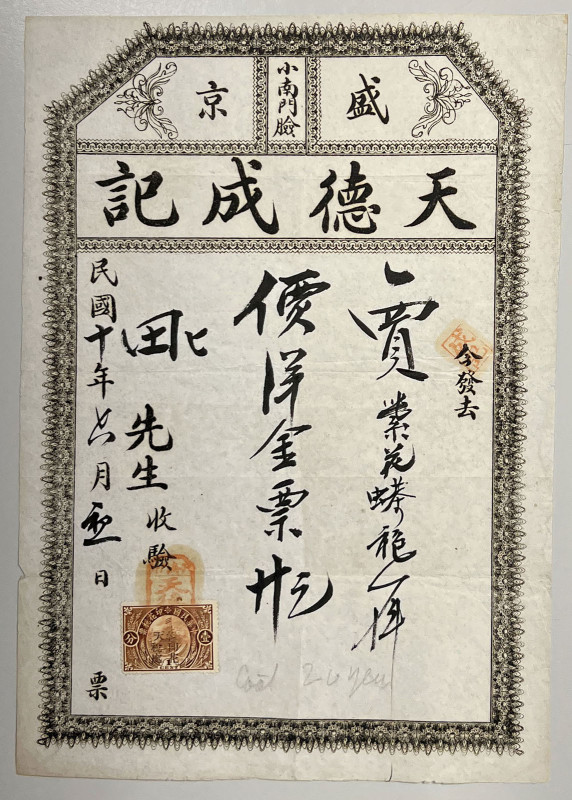 盛京
小南門臉
天德成記
今發去
一買紫花蟒袍一件
價洋金票廿元
田北先生收驗
民國十年月日票
壹分
Cost 20 yen